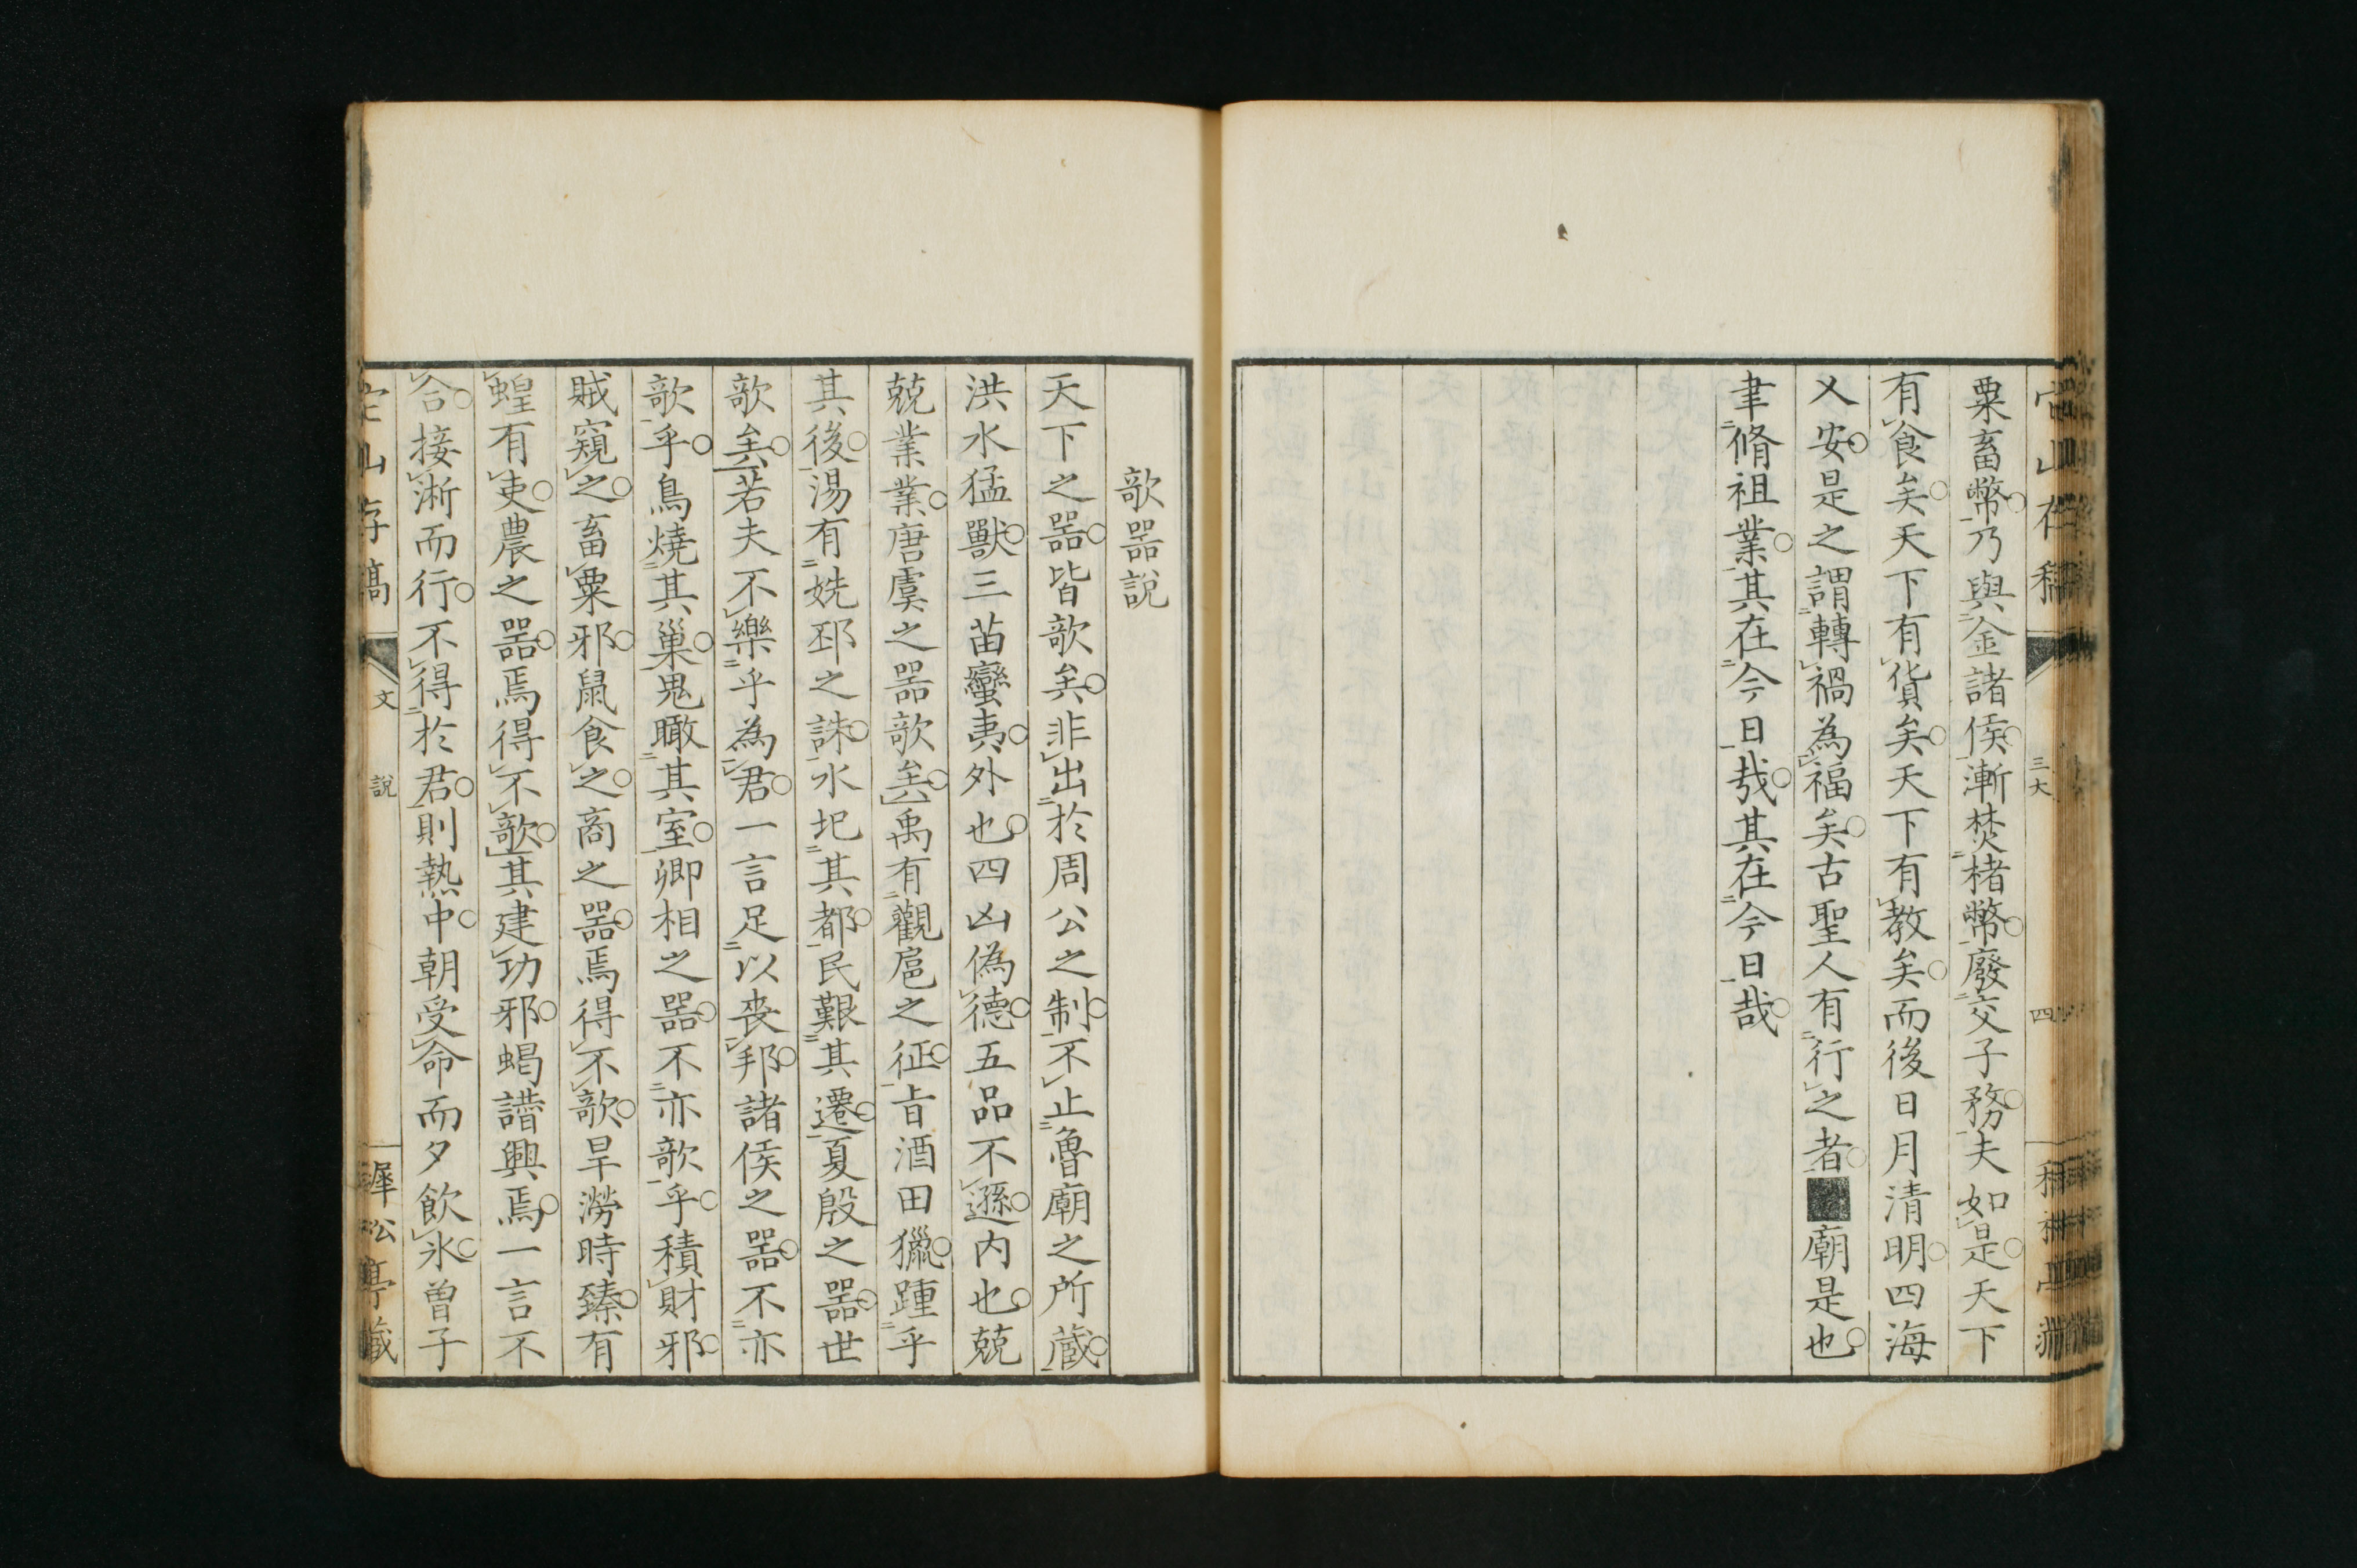 粟畜幣乃與金諸侯漸焚楮幣廢交子務夫如是天下
有食矣天下有貨矣天下有教矣而後日月清明四海
乂安是之謂轉禍為福矣古聖人有行之者■廟是也
聿脩祖業其在今日哉其在今日哉
三大
四
欹器說
天下之器皆欹矣非出於周公之制不止魯廟之所蔵
洪水猛獸三苗蠻夷外也四凶偽德五品不遜內也兢
兢業業唐虞之器欹矣禹有觀扈之征旨酒田獵踵乎
其後湯有姺邳之誅水圯其都民艱其遷夏殷之器世
欹矣若夫不樂乎為君一言足以喪邦諸侯之器不亦
欹乎鳥燒其巢鬼瞰其室卿相之器不亦欹乎積財邪
賊窺之畜粟邪鼠食之商之器焉得不欹旱澇時臻有
蝗有吏農之器焉得不欹其建功邪蝎譖興焉一言不
合接淅而行不得於君則熱中朝受命而夕飲氷曾子
宕山存稿
文
說
遲松亭蔵